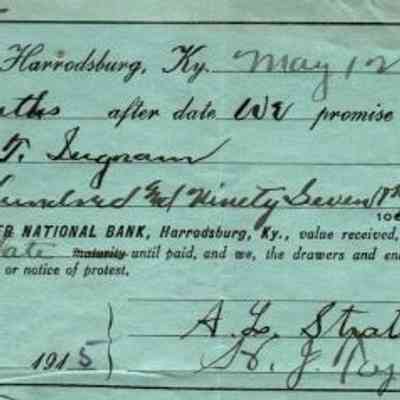 Harrodsburg, Ky. May 12
after date We promise
T. Ingram
hundred and Ninety Seven
100
NATIONAL BANK, Harrodsburg, Ky., value received,
date maturity until paid, and we, the drawers and en
or notice of protest.
A. L. Strat
1915
H. J.